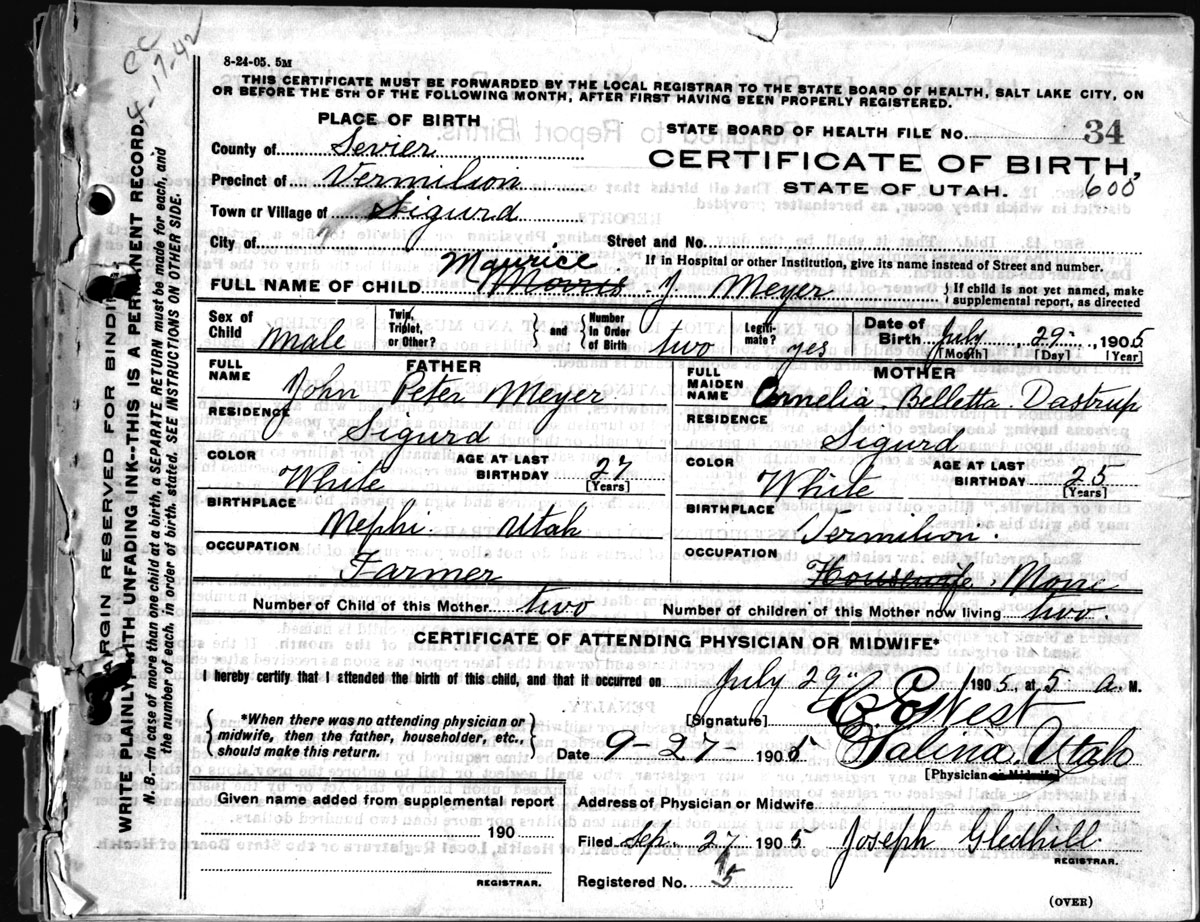 8-24-05. 5M
THIS CERTIFICATE MUST BE FORWARDED BY THE LOCAL REGISTRAR TO THE STATE BOARD OF HEALTH, SALT LAKE CITY, ON
OR BEFORE THE 5TH OF THE FOLLOWING MONTH, AFTER FIRST HAVING BEEN PROPERLY REGISTERED.
PLACE OF BIRTH
STATE BOARD OF HEALTH FILE No. 34
County of Sevier
CERTIFICATE OF BIRTH,
Precinct of Vermilion
STATE OF UTAH. 600
Town or Village of Sigurd
City of Street and No.
Maurice If in Hospital or other Institution, give its name instead of Street and number.
FULL NAME OF CHILD Morris J Meyer { If child is not yet named, make supplemental report, as directed
Sex of Child Male Twin, Triplet, or Other? } and { Number in Order of Birth two Legiti- mate? yes Date of Birth July 29 1905
[Month] [Day] [Year]
FATHER MOTHER
FULL NAME John Peter Meyer FULL MAIDEN NAME Cornelia Belletta Dastrup
RESIDENCE Sigurd RESIDENCE Sigurd
COLOR White AGE AT LAST BIRTHDAY 27 [Years] COLOR White AGE AT LAST BIRTHDAY 25 [Years]
BIRTHPLACE Nephi Utah BIRTHPLACE Vermilion.
OCCUPATION Farmer OCCUPATION Housewife
Number of Child of this Mother two Number of children of this Mother now living two.
CERTIFICATE OF ATTENDING PHYSICIAN OR MIDWIFE*
I hereby certify that I attended the birth of this child, and that it occurred on July 29" 1905, at 5 a. M.
{ *When there was no attending physician or midwife, then the father, householder, etc., should make this return. }
[Signature] West
Date 9-27- 1905 Salina, Utah
[Physician or Midwife]
Given name added from supplemental report
Address of Physician or Midwife
190
Filed Sep. 27 1905 Joseph Gledhill
REGISTRAR.
Registered No.
REGISTRAR.
(OVER)
MARGIN RESERVED FOR BINDING
WRITE PLAINLY WITH UNFADING INK--THIS IS A PERMANENT RECORD.
N. B.—In case of more than one child at a birth, a SEPARATE RETURN must be made for each, and
the number of each, in order of birth, stated. SEE INSTRUCTIONS ON OTHER SIDE.